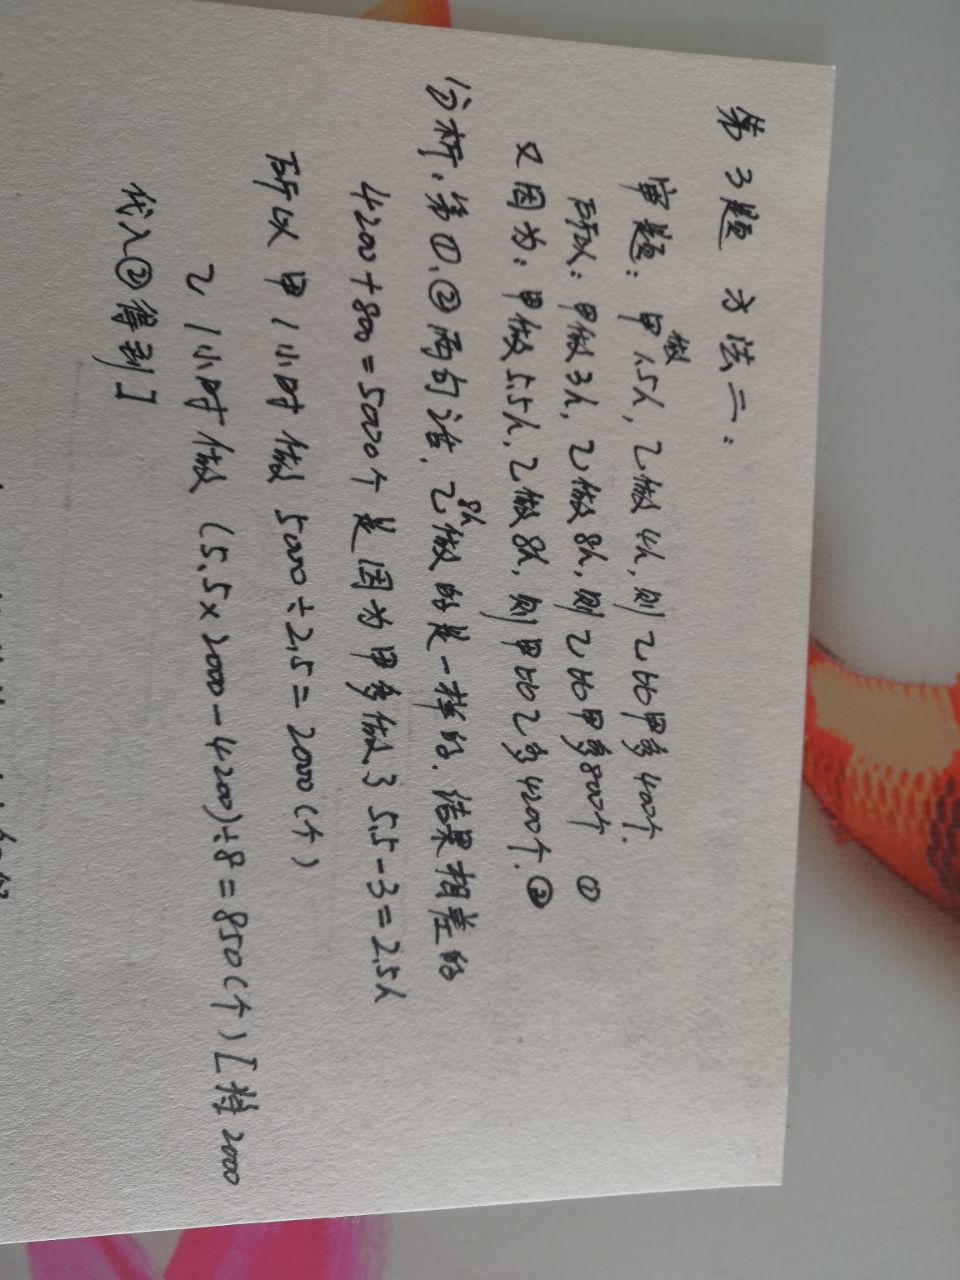 第3题 方法二：
审题：甲做1.5h，乙做4h，则乙比甲多400个.
所以：甲做3h，乙做8h，则乙比甲多800个 ①
又因为：甲做5.5h，乙做8h，则甲比乙多4200个.②
分析：第①、②两句话，乙做8h的是一样的，结果相差的
4200+800=5000个 是因为甲多做了 5.5-3=2.5h
所以 甲1小时 做 5000÷2.5=2000（个）
乙1小时做 (5.5×2000-4200)÷8=850（个）[将2000
代入②得到]